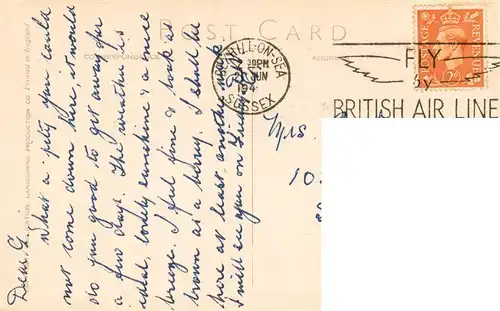 POST CARD
CORRESPONDENCE
Dear G.
What a pity you could
not come down here, it would
do you good to get away for
a few days. The weather is
ideal, lovely sunshine & a nice
breeze. I feel fine & look as
brown as a berry. I shall be
here at least another week
I will see you on
BEXHILL-ON-SEA
30PM
JUN
194
SUSSEX
FLY
BY
BRITISH AIR LINE
POSTAGE
REVENUE
Mrs.
10